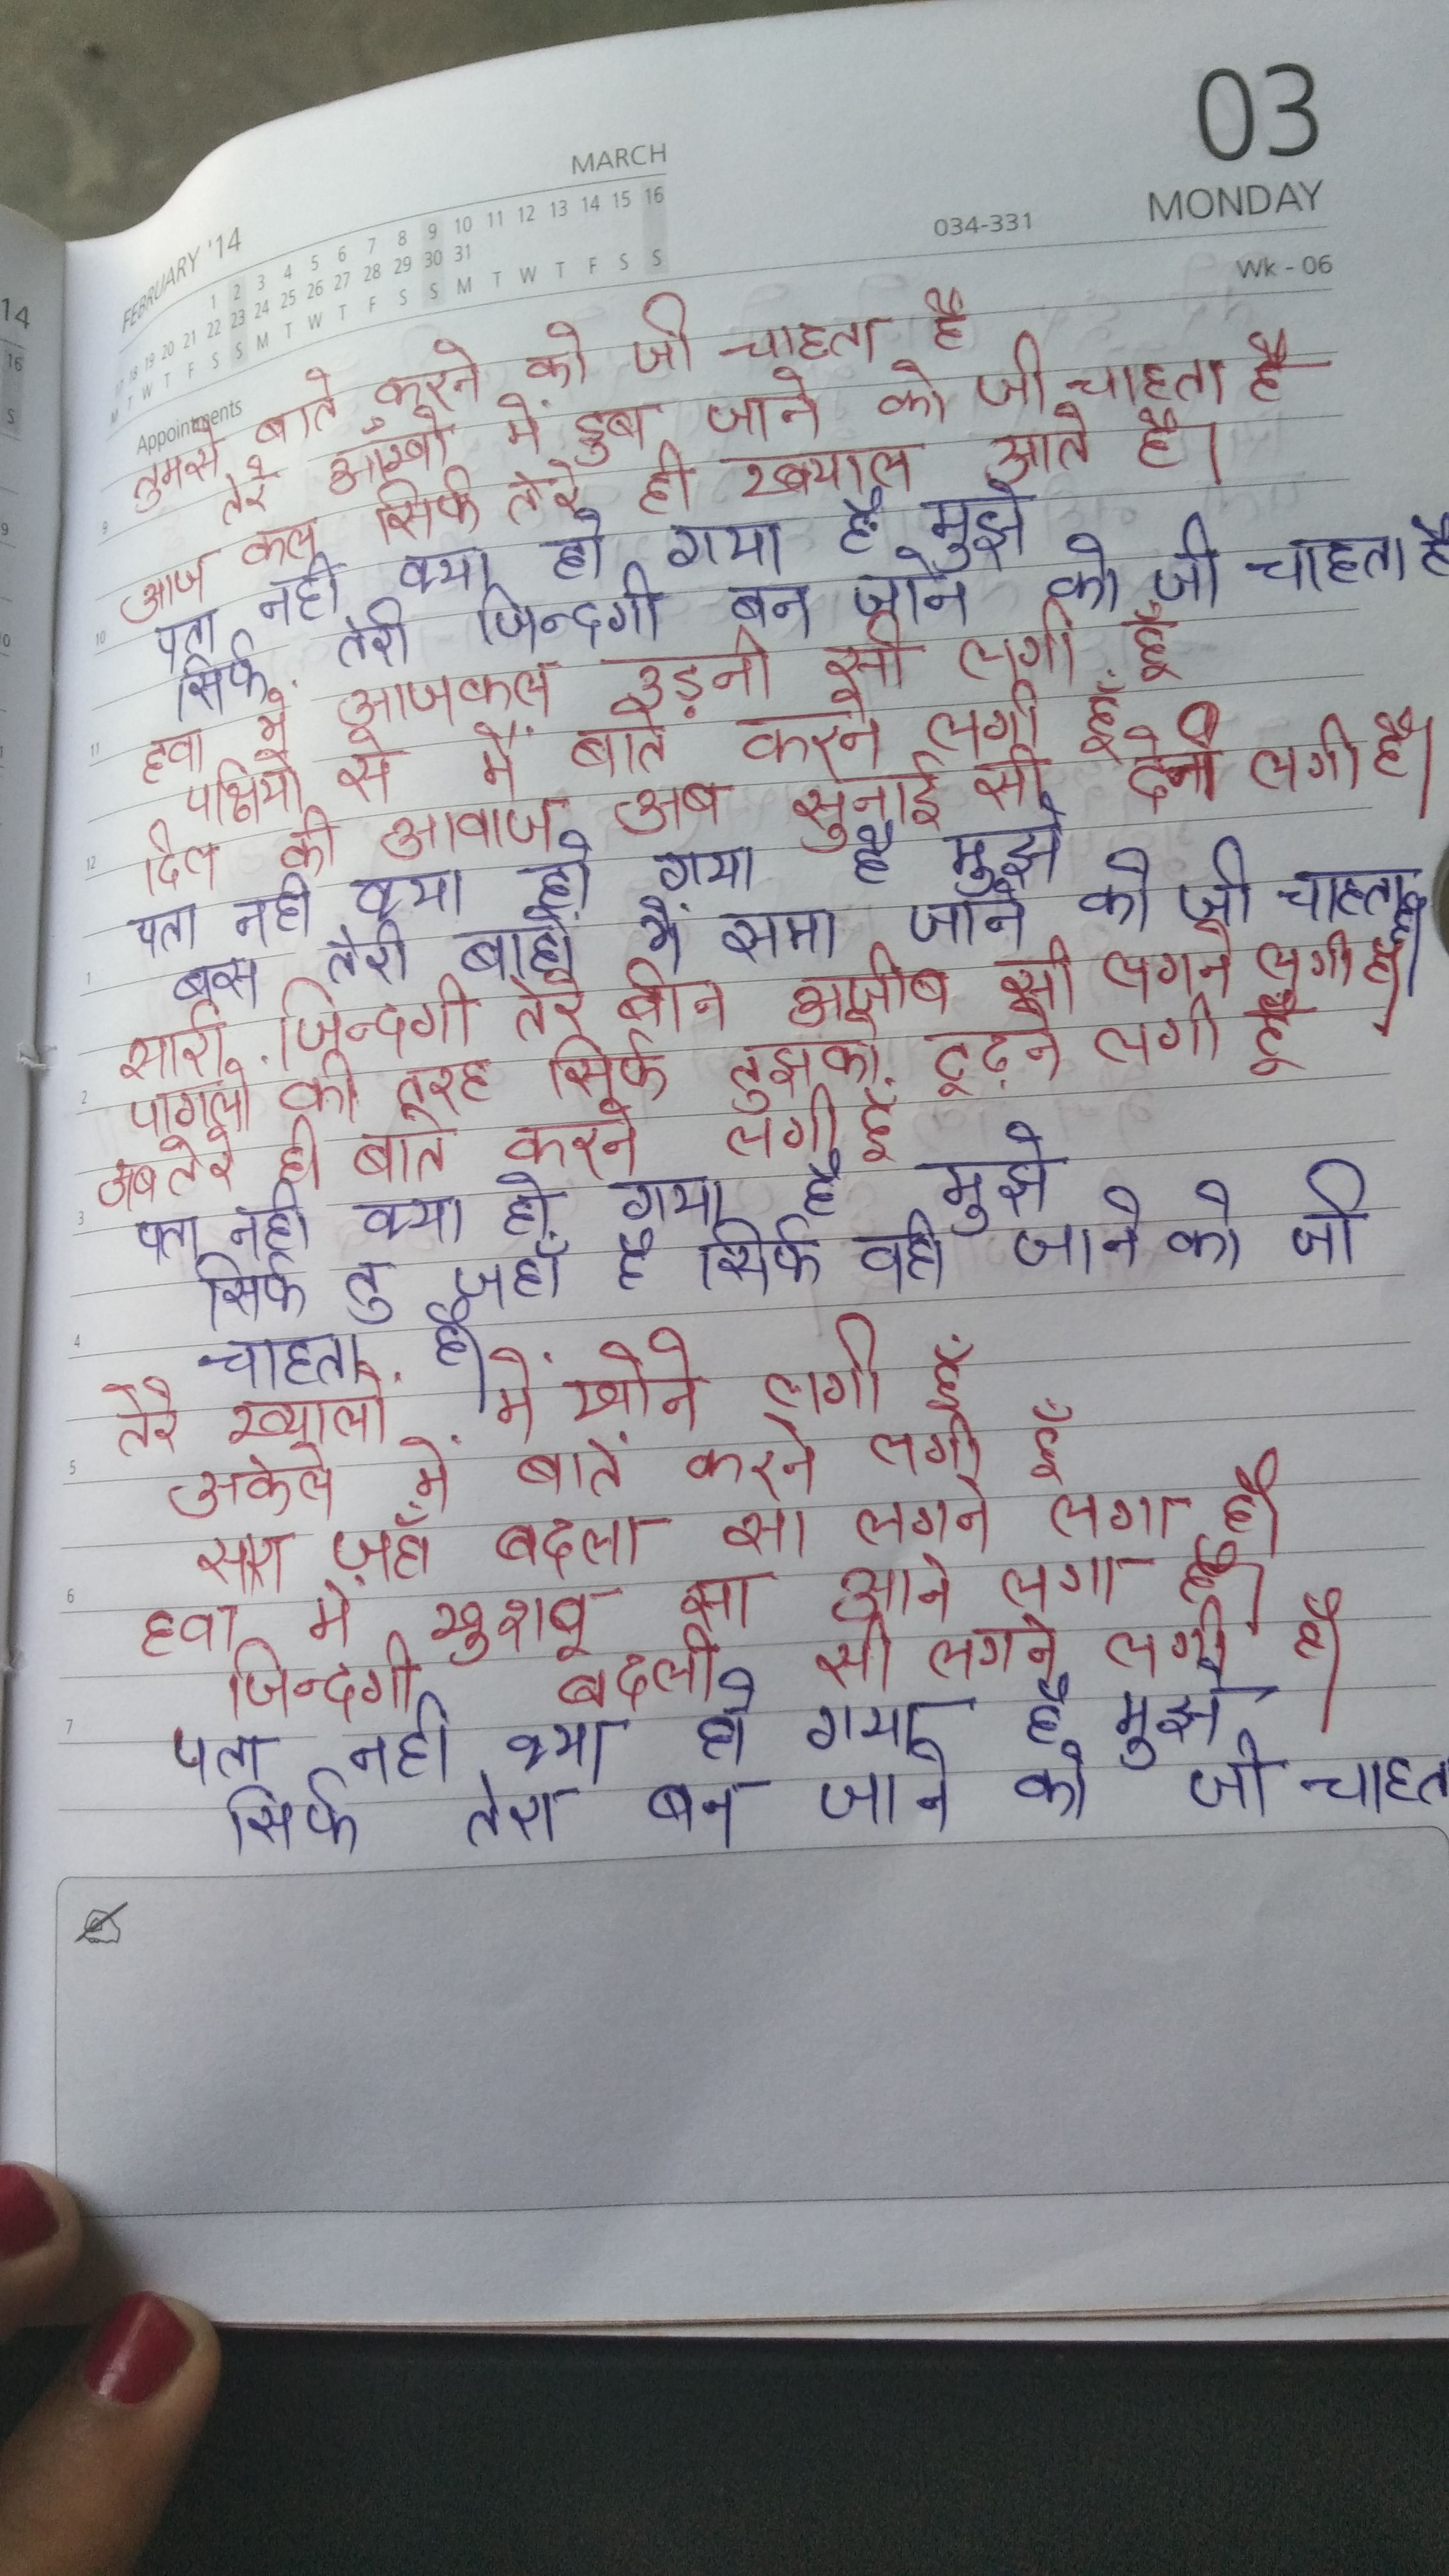 03
MARCH
MONDAY
FEBRUARY '14
034-331
Wk - 06
1 2 3 4 5 6 7 8 9 10 11 12 13 14 15 16
17 18 19 20 21 22 23 24 25 26 27 28 29 30 31
M T W T F S S M T W T F S S M T W T F S S
Appointments
तुमसे बाते करने को जी चाहता है
तेरे आँखो में डुब जाने को जी चाहता है
9
आज कल सिर्फ तेरे ही ख्याल आते है।
10
पता नही क्या हो गया है मुझे
सिर्फ तेरी जिन्दगी बन जाने को जी चाहता है
हवा में आजकल उड़नी सी लगी हूँ
11
पक्षियो से में बाते करने लगी हूँ
दिल की आवाज अब सुनाई सी देनी लगी है।
12
पता नही क्या हो गया है मुझे
बस तेरी बाहो में समा जाने को जी चाहता है।
1
सारी जिन्दगी तेरे बीन अजीब सी लगने लगी है।
पागलो की तरह सिर्फ तुझको ढूढ़ने लगी हूँ
2
अब तेरे ही बाते करने लगी हूँ
पता नही क्या हो गया है मुझे
3
सिर्फ तु जहाँ है सिर्फ वही जाने को जी
चाहता है।
4
तेरे ख्यालो में खोने लगी हूँ
अकेले में बातें करने लगी हूँ
5
सारा जहाँ बदला सा लगने लगा है।
हवा में खुशबू सा आने लगा है।
6
जिन्दगी बदली सी लगने लगी है।
पता नही क्या हो गया है मुझे
7
सिर्फ तेरा बन जाने को जी चाहता
14
16
S
9